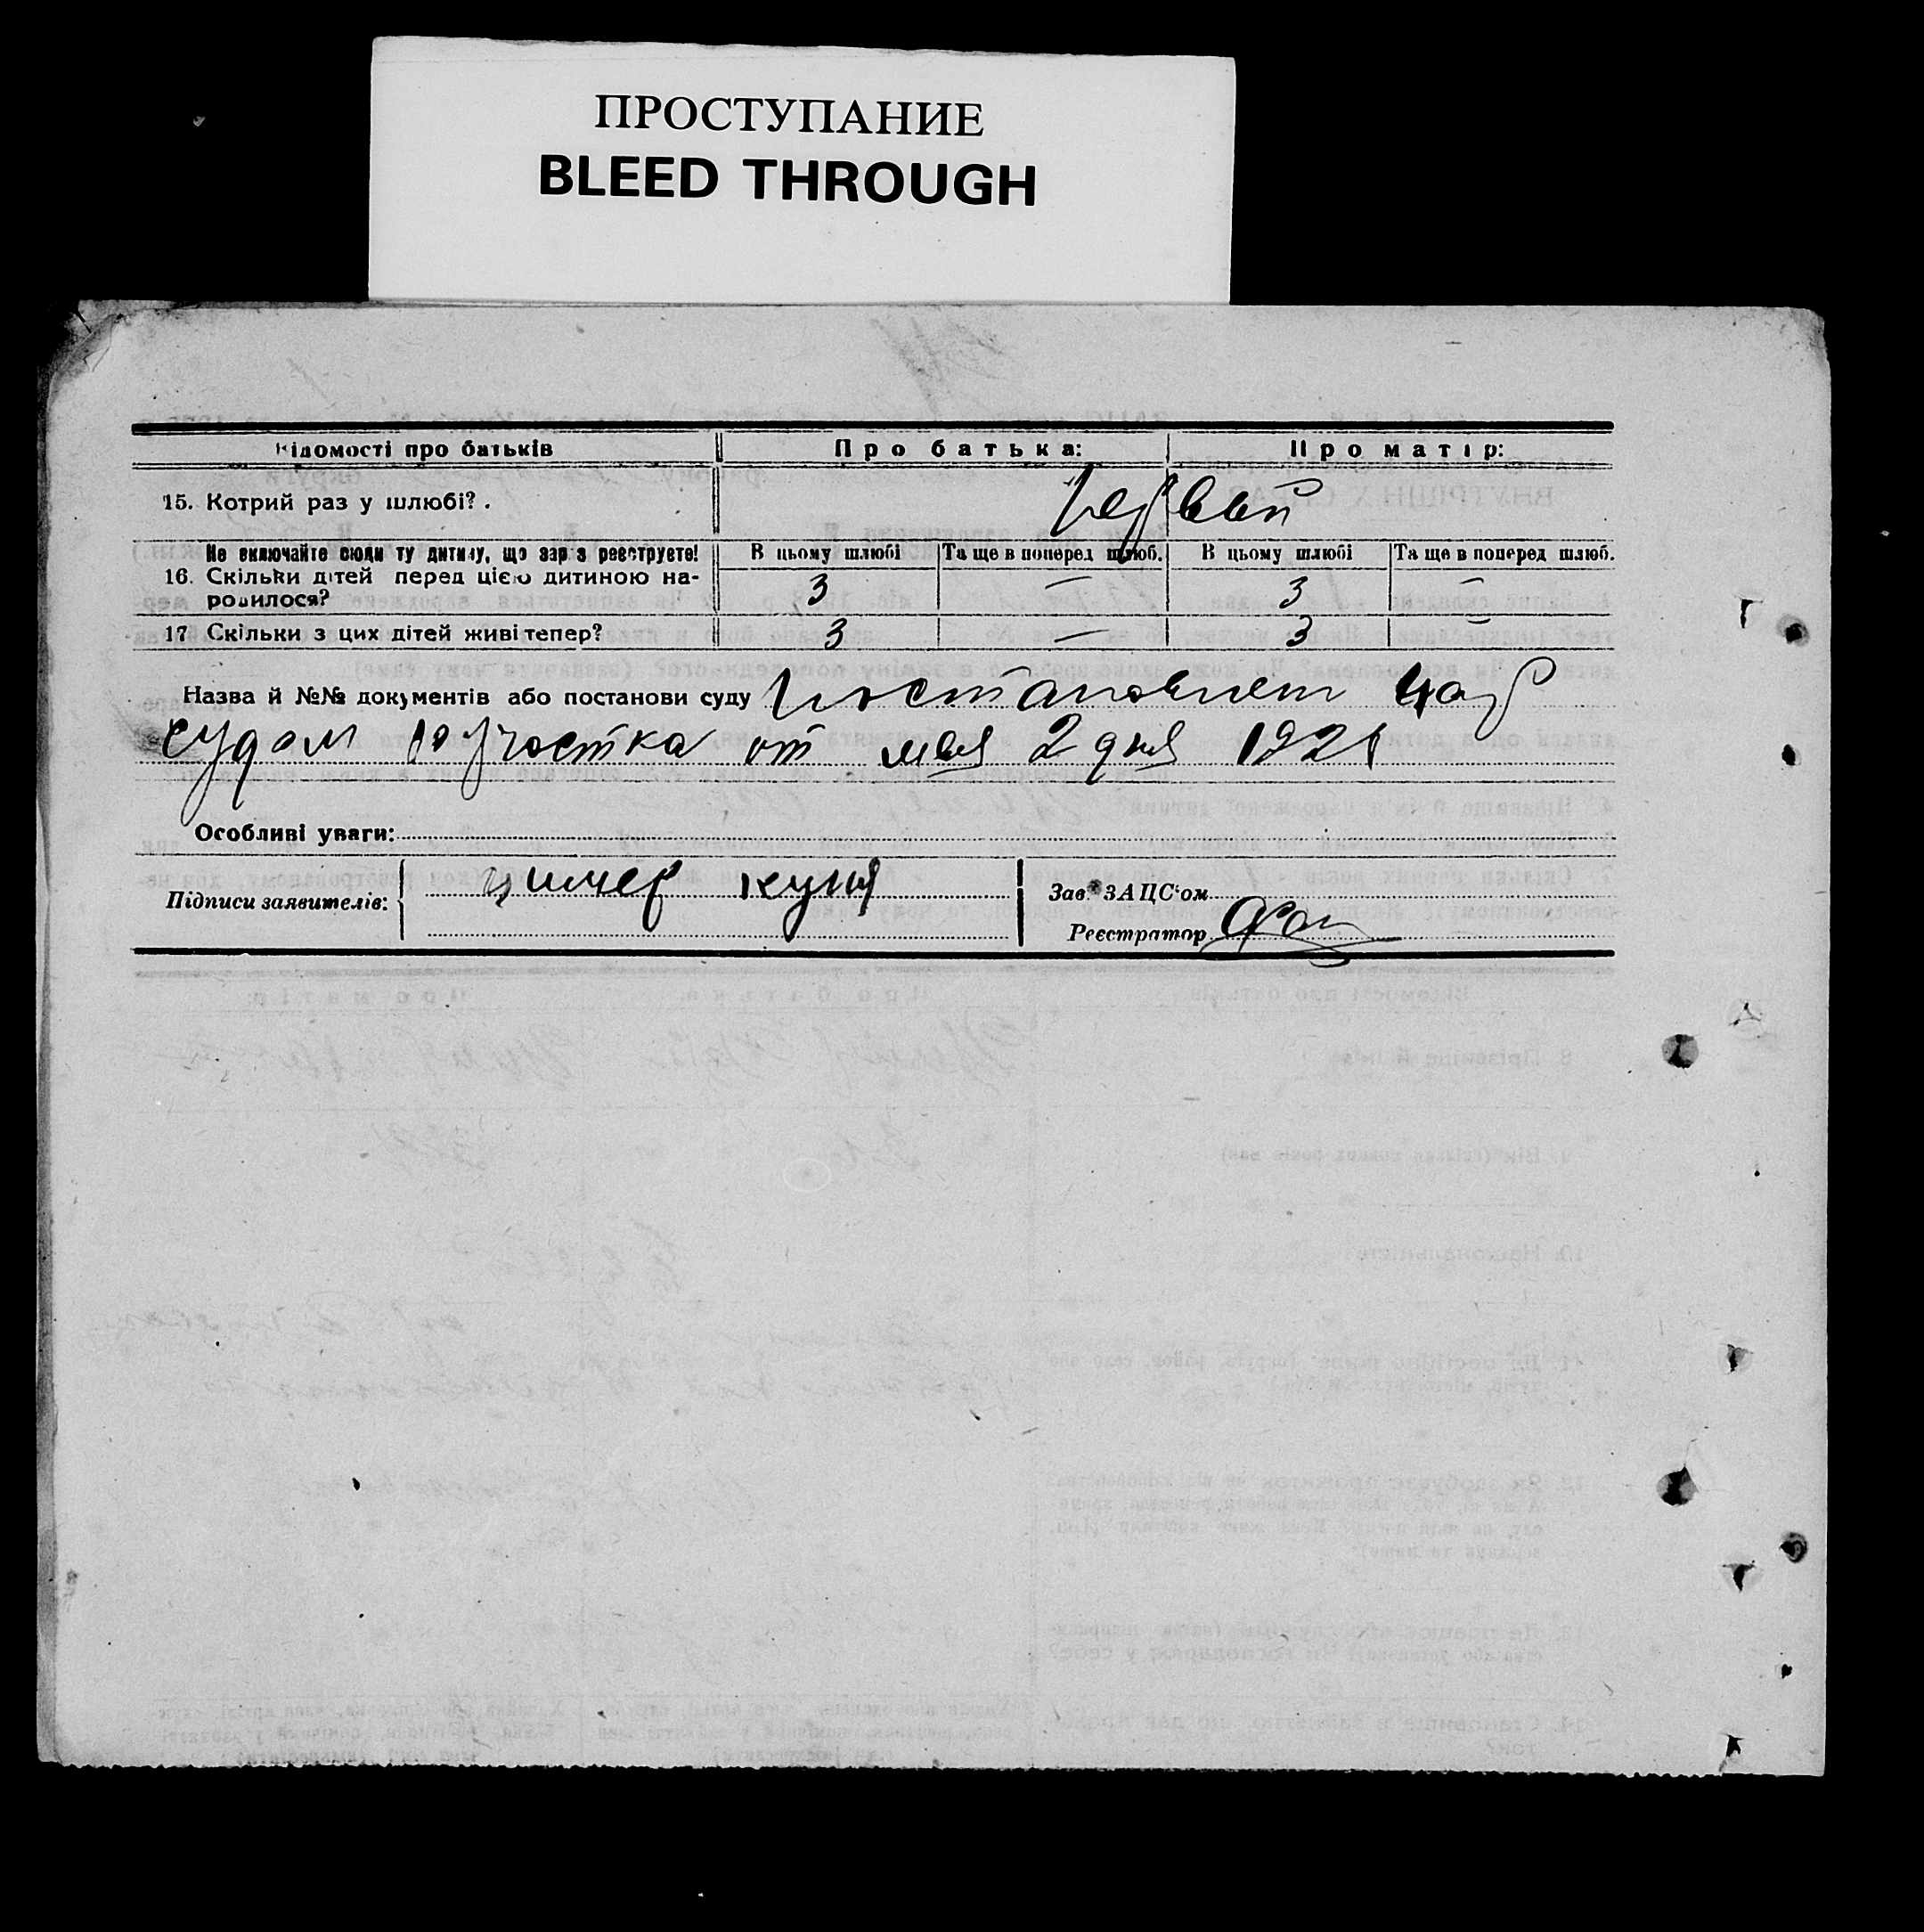 ПРОСТУПАНИЕ
BLEED THROUGH
Відомості про батьків Про батька: Про матір:
15. Котрий раз у шлюбі? . первый
Не включайте сюди ту дитину, що зараз реєструєте! В цьому шлюбі Та ще в поперед шлюб. В цьому шлюбі Та ще в поперед шлюб.
16. Скільки дітей перед цією дитиною на-
родилося? 3 — 3 —
17 Скільки з цих дітей живі тепер? 3 — 3 —
Назва й №№ документів або постанови суду Постановлен Нар
судом участка от мая 2 дня 192
Особливі уваги:
Підписи заявителів: цимер куня
Зав. ЗАЦС'ом
Реєстратор